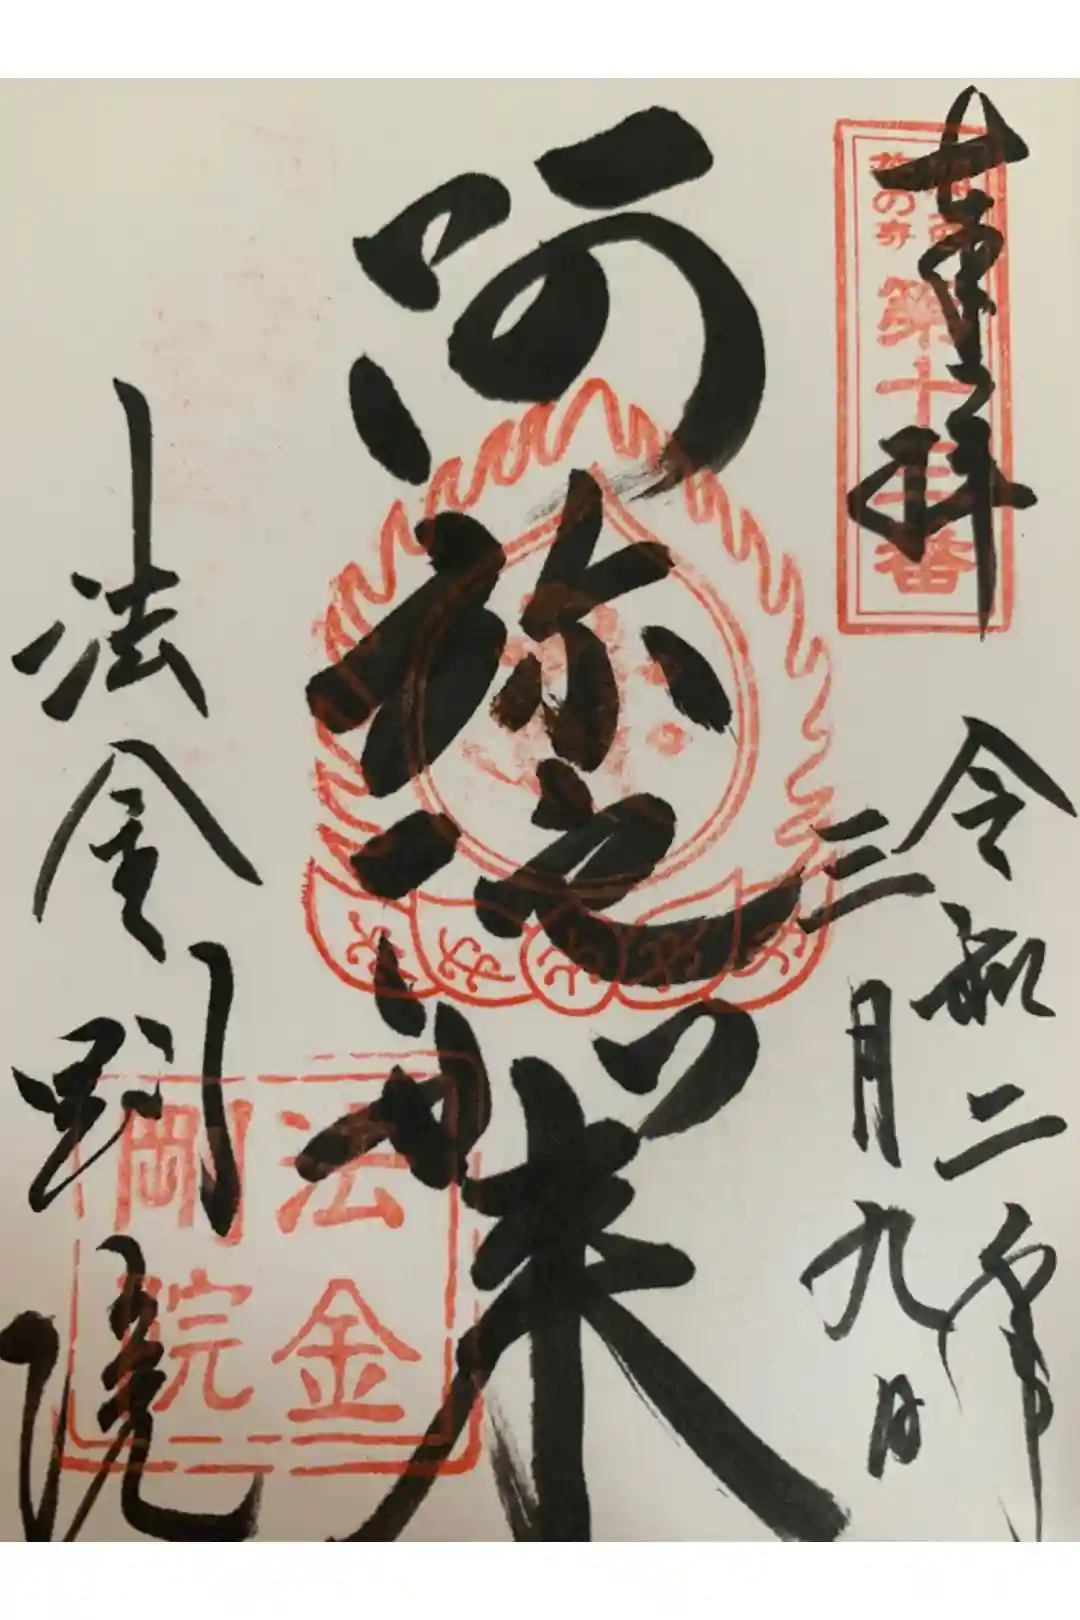 奉拝
関西
花の寺
第十三番
令和二年
三月九日
阿弥陀如来
法金剛院
法金
剛院